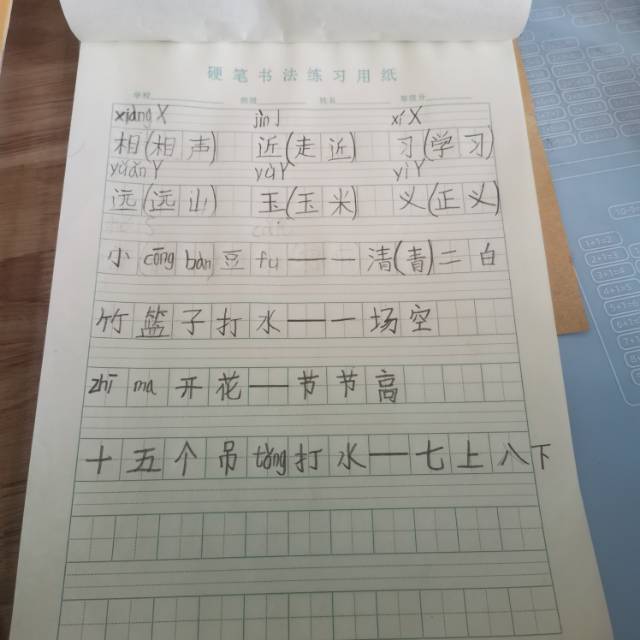 硬笔书法练习用纸
学校 班级 姓名
xiāng X jìn J xí X
相(相声) 近(走近) 习(学习)
yuǎn Y yù Y yì Y
远(远山) 玉(玉米) 义(正义)
小 cōng bàn 豆 fu——一清(青)二白
竹篮子打水——一场空
zhī ma 开花——节节高
十五个吊 tǒng 打水—七上八下